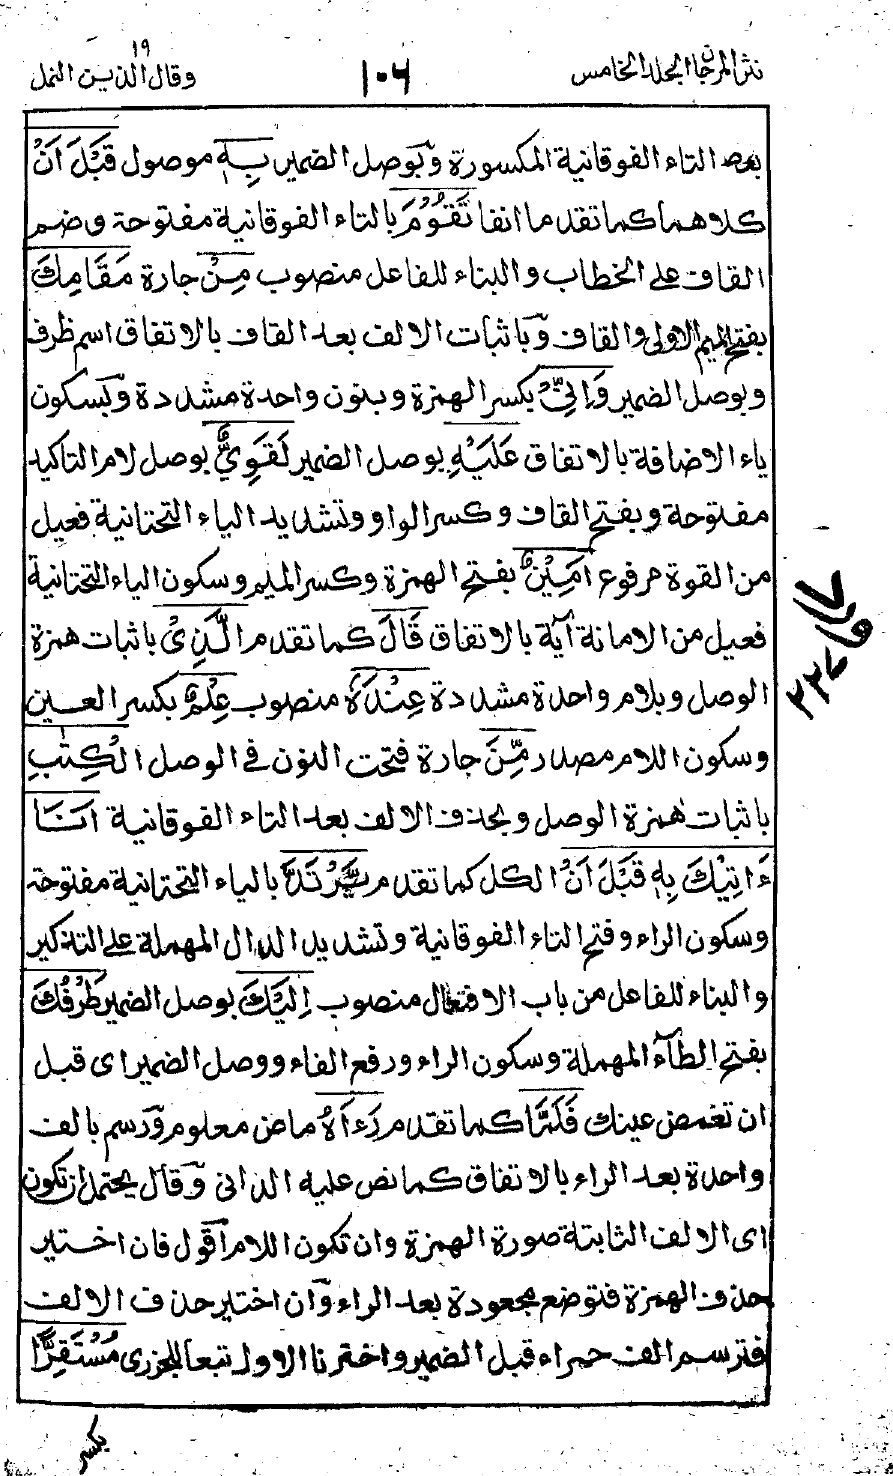 نثر المرجان المجلد الخامس
١٠٦
وقال الذين ١٩ النمل
بعد التاء الفوقانية المكسورة وَبوصل الضمير بِهٖ موصول قَبْلَ اَنْ
كلاهما كما تقدما انفا تَقُوْمَ بالتاء الفوقانية مفتوحة وضم
القاف على الخطاب والبناء للفاعل منصوب مِنْ جارة مَقَامِكَ
بفتح الميم الاولى والقاف وَباثبات الالف بعد القاف بالاتفاق اسم ظرف
وبوصل الضمير وَاِنِّيْ بكسر الهمزة وبنون واحدة مشددة وَبسكون
ياء الاضافة بالاتفاق عَلَيْهِ بوصل الضمير لَقَوِيٌّ بوصل لام التاكيد
مفتوحة وبفتح القاف وكسر الواو وتشديد الياء التحتانية فعيل
من القوة مرفوع اَمِيْنٌ بفتح الهمزة وكسر الميم وسكون الياء التحتانية
فعيل من الامانة آية بالاتفاق قَالَ كما تقدم الَّذِيْ باثبات همزة
الوصل وبلام واحدة مشددة عِنْدَهٗ منصوب عِلْمٌ بكسر العين
وسكون اللام مصدر مِّنَ جارة فتحت النون في الوصل الْكِتٰبِ
باثبات همزة الوصل وبحذف الالف بعد التاء الفوقانية اَنَا
ءَاتِيْكَ بِهٖ قَبْلَ اَنْ الكل كما تقدم يَّرْتَدَّ بالياء التحتانية مفتوحة
وسكون الراء وفتح التاء الفوقانية وتشديد الدال المهملة على التذكير
والبناء للفاعل من باب الافتعال منصوب اِلَيْكَ بوصل الضمير طَرْفُكَ
بفتح الطآء المهملة وسكون الراء ورفع الفاء ووصل الضمير اى قبل
ان تغمض عينك فَلَمَّا كما تقدم رَءَاهُ ماض معلوم وَرسم بالف
واحدة بعد الراء بالاتفاق كما نص عليه الدانى وَقال يحتمل ان تكون
اى الالف الثابتة صورة الهمزة وان تكون اللام اَقول فان اختير
حذف الهمزة فتوضع مجعودة بعد الراء وَان اختير حذف الالف
فترسم الف حمراء قبل الضمير واخترنا الاول تبعا للجزرى مُسْتَقِرًّا
بكسر